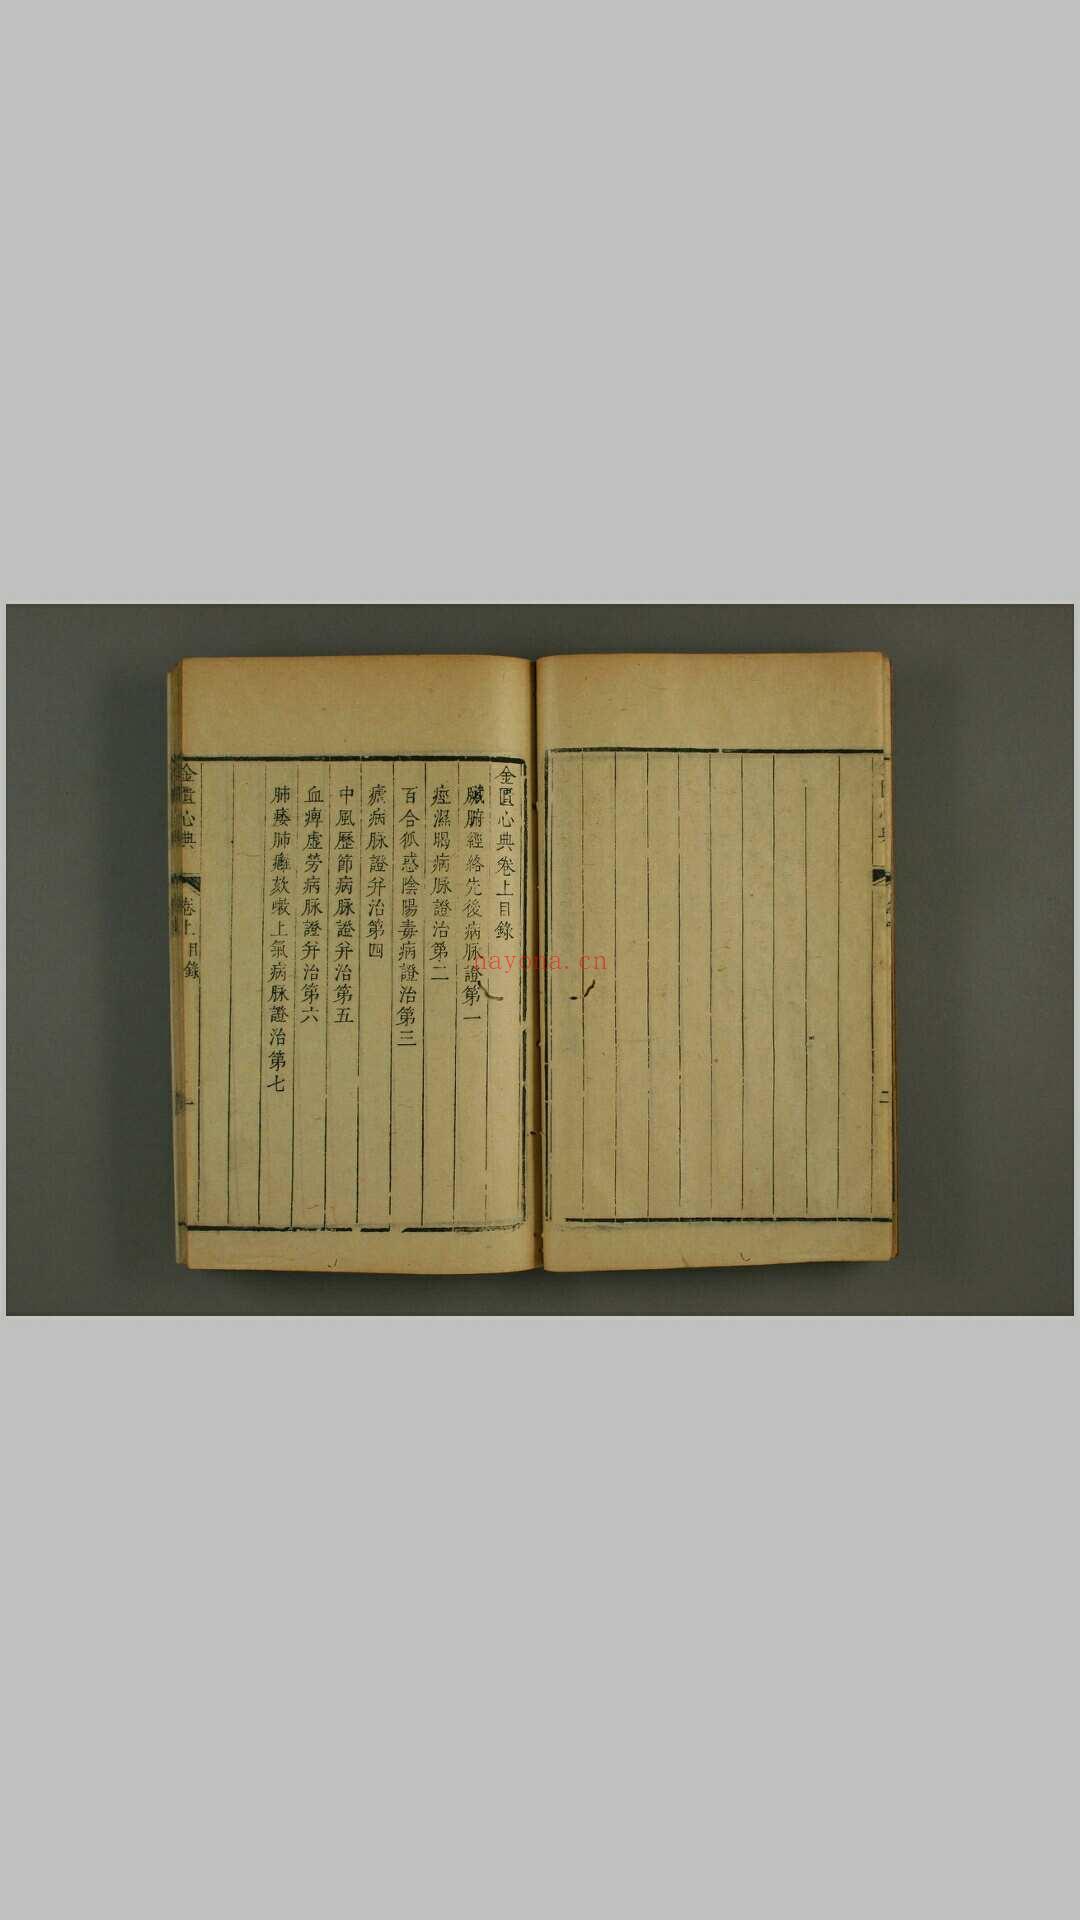 金匱心典卷上目錄
臟腑經絡先後病脉證第一
痙濕暍病脉證治第二
百合狐惑陰陽毒病證治第三
瘧病脉證并治第四
中風歷節病脉證并治第五
血痺虛勞病脉證并治第六
肺痿肺癰欬嗽上氣病脉證治第七
金匱心典
卷上目錄
一
二
nayona.cn